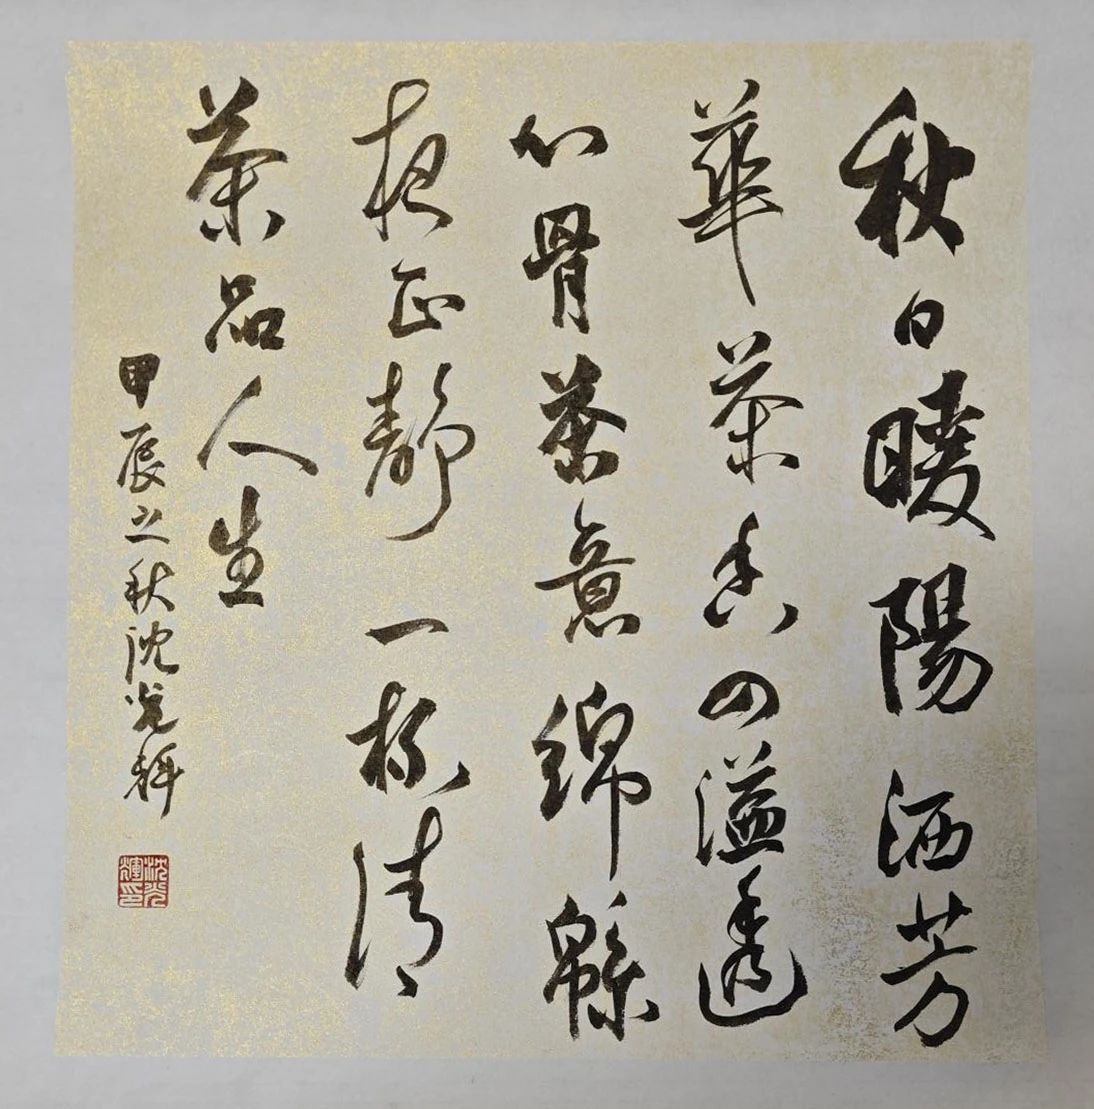 秋日暖陽洒芳
華茶香四溢透
心骨茶意綿緜
夜正靜一杯清
茶品人生
甲辰之秋沈光輝
沈光輝印